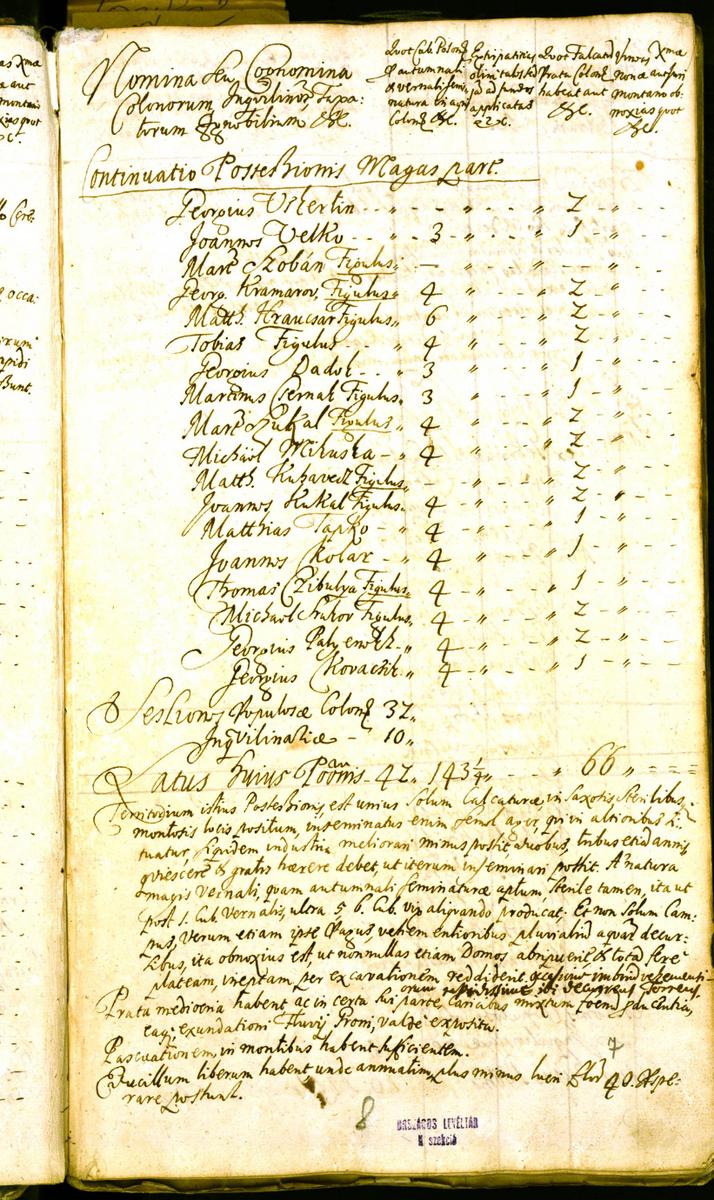 Nomina seu Cognomina
Colonorum Inquilinor Taxa:
torum Ignobilium &c.
Quot Cub. Poson.
& autumnali
& vernali semi:
natura
Colonq &c.
Extirpatitias
olim
ad fundos
applicatas
Quot Falcat.
Prata Colonq
habeat aut
&c.
Vineas Xmæ
Nonæ aut juri
montano ob:
noxias quot
&c.
Continuatio Possessionis Magas part.
Georgius Uherlin - - " - " - - " 2 - "
Joannes Velko - - " 3 - " - - " 1 - "
Mart. Szobán Figulus " — " - "
Georg. Kramarov, Figulus " 4 " " 2 - "
Matth. Kraucsar Figulus " 6 " " 2 - "
Tobias Figulus - - " 4 " " 2 - "
Georgius Dadok - - " 3 " " 1 - "
Martinus Csernak Figulus " 3 " " 1 - "
Mart. Kukal Figulus " 4 " " 2 - "
Michaël Mikuska - " 4 " " 2 - "
Matth. Figulus " - " " 2 - "
Joannes Kukal Figulus " 4 " " 2 - "
Matthias Tapko - " 4 " " 1 - "
Joannes Kolar - " 4 " " 1 - "
Thomas Czibulya Figulus " 4 " " 1 - "
Michaël Figulus " 4 " " 2 - "
Georgius - " 4 " " 2 - "
Georgius Kovachik " 4 " " 1 - "
Sessiones Populosæ Colonq 32 "
Inquilinaliæ - 10 "
Latus huius Poonis - 42 " 143 1/4 " - - " 66 "
Territorium istius Possessionis, est unius Solum Calcaturæ, in Saxosis, Sterilibus,
montosis locis positum, inseminatus enim semel ager, qui in altionbus Si:
tuatur, siquidem industria meliorari minus possit, duobus, tribus etia annis
quiescere & gratis hærere debet, ut iterum inseminari possit. A natura
magis vernali, quam autumnali seminaturæ aptum, Sterile tamen, ita ut
post 1. Cub. Vernalis, ultra 5. 6. Cub. vix aliquando producat. Et non Solum Cam-
pus, verum etiam ipse Pagus, vehementioribus pluvialiu aquar decur-
sibus, ita obnoxius est, ut nonnullas etiam Domos abripuerit & tota fere
plateam, ineptam per excavationem reddiderit, imbriu vehementi-
orum rapidissime ibi decurrens Torrens.
Prata mediocria habent ac in certa sui parte Caricibus mixtum foenu producentia,
eaq: exundationi Fluvij Proni, valde exposita.
Pascuationem, in montibus habent Sufficientem.
Ducillum liberum habent unde annuatim, plus minus lucri flor 40. Aspe:
rare possunt.
7
8
ORSZÁGOS LEVÉLTÁR
N szekció